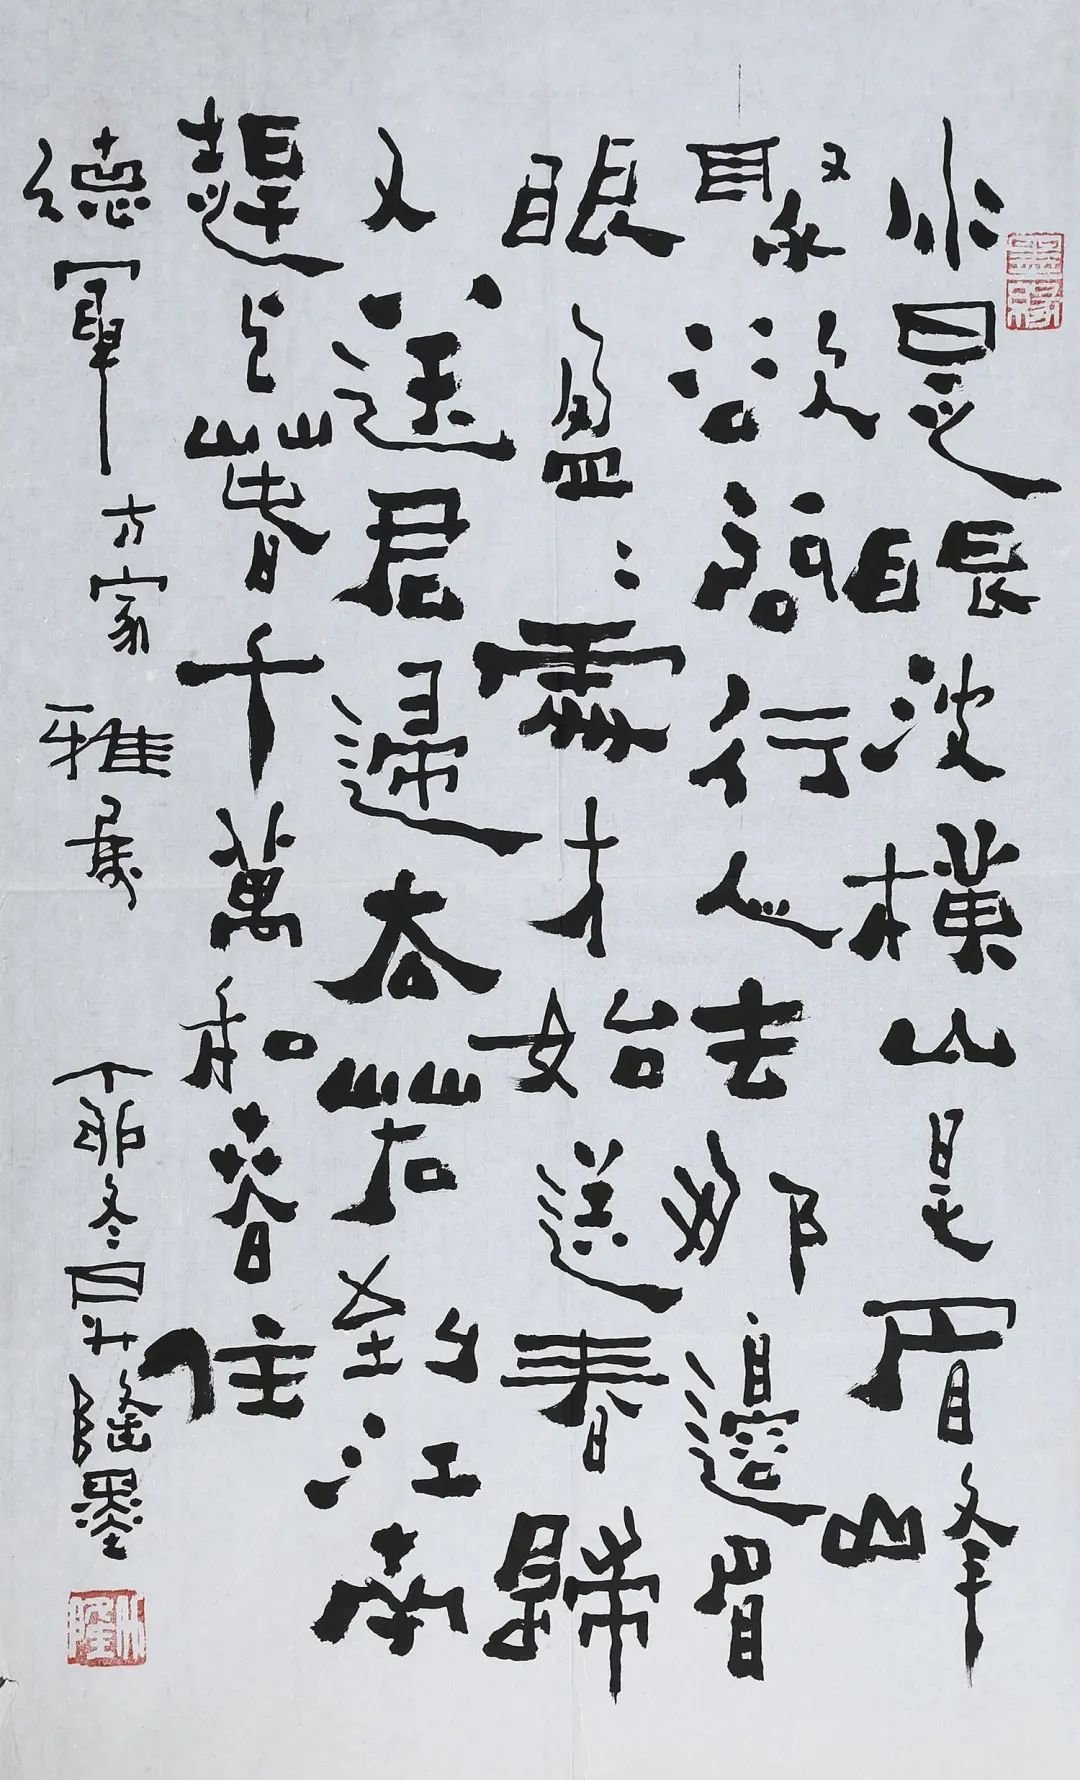 墨緣
水是眼波橫山是眉峰
聚欲問行人去那邊眉
眼盈〻處才始送春歸
又送君歸去若到江南
趕上春千萬和春住
德軍方家雅屬
丁卯冬日隆墨
隆